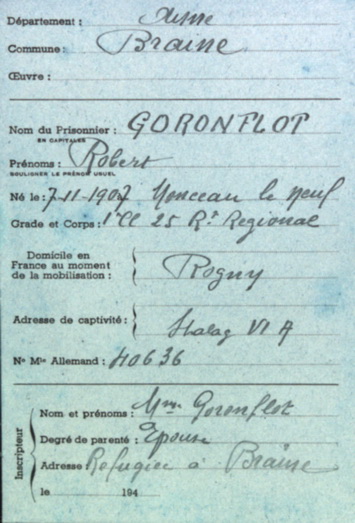 Département : Aisne
Commune : Braine
Œuvre :
Nom du Prisonnier : GORONFLOT
EN CAPITALES
Prénoms : Robert
SOULIGNER LE PRÉNOM USUEL
Né le : 7-11-1907 Monceau le Neuf
Grade et Corps : 1e Cl 25 Rt Regional
Domicile en
France au moment
de la mobilisation :
Rogny
Adresse de captivité : Stalag VI A
No Mle Allemand : 40636
Inscripteur
Nom et prénoms : Mme Goronflot
Degré de parenté : Epouse
Adresse Refugiée à Braine
le 194